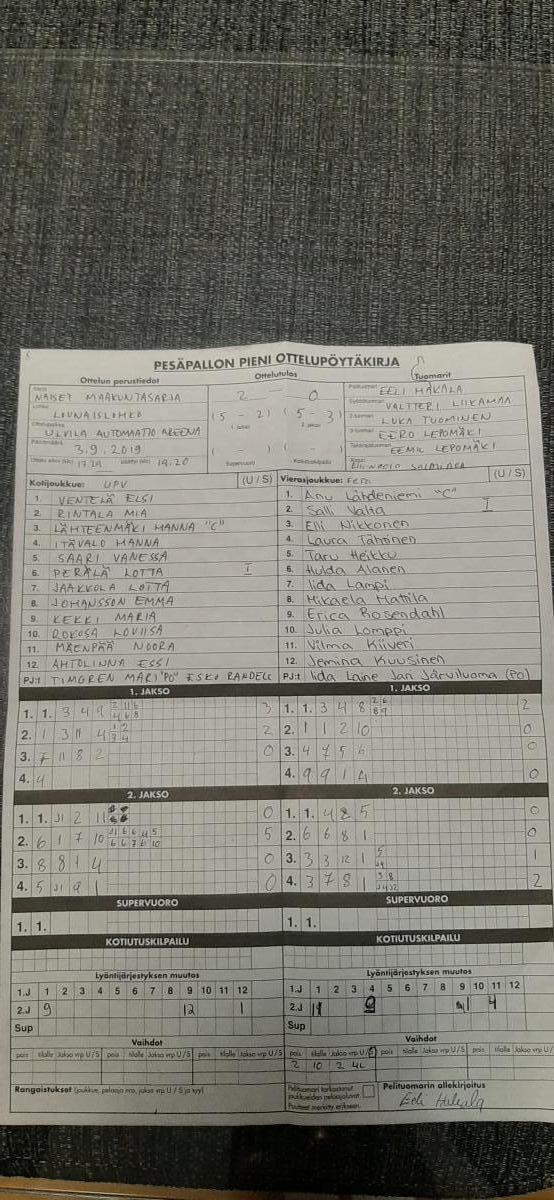 PESÄPALLON PIENI OTTELUPÖYTÄKIRJA
Ottelun perustiedot Ottelutulos Tuomarit
Sarja NAISET MAAKUNTASARJA 2 0 Pelituomari EELI HAKALA
Lohko LOUNAISLOHKO (5 - 2) (5 - 3) Syöttötuomari VALTTERI LIIKAMAA
1. jakso 2. jakso 2-tuomari LUKA TUOMINEN
Ottelupaikka ULVILA AUTOMAATIO AREENA 3-tuomari EERO LEPOMÄKI
Päivämäärä 3.9.2019 ( - ) ( - ) Takarajatuomari EEMIL LEPOMÄKI
Ottelu alkoi (klo) päättyi (klo) 19.20 Supervuoro Kotiutuskilpailu Kirjuri
Kotijoukkue: UPV (U / S) Vierasjoukkue: (U / S)
1. VENTELÄ ELSI 1. Anu Lähdeniemi "C"
2. RINTALA MIA 2. Salli Valta I
3. LÄHTEENMÄKI HANNA "C" 3. Elli Nikkonen
4. ITÄVALO HANNA 4. Laura Tähtinen
5. SAARI VANESSA 5. Taru Heikku
6. PERÄLÄ LOTTA I 6. Hulda Alanen
7. JAAKKOLA LOTTA 7. Iida Lampi
8. JOHANSSON EMMA 8. Mikaela Mattila
9. KEKKI MARIA 9. Erica Rosendahl
10. ROKOSA LOVIISA 10. Julia Lomppi
11. MÄENPÄÄ NOORA 11. Vilma Kiiveri
12. AHTOLINNA ESSI 12. Jemina Kuusinen
PJ:t TIMGREN MARI "PO" ESKO RANDELL PJ:t Iida Laine Jan Järviluoma (PO)
1. JAKSO 1. JAKSO
1. 1. 3 4 9 2 11 6 4 6 8 3 1. 1. 3 4 8 2 6 8 9 2
2. 1 3 11 4 1 2 3 4 2 2. 1 1 2 10 0
3. 7 11 8 2 0 3. 4 7 5 6 0
4. 4 4. 9 9 1 4 0
2. JAKSO 2. JAKSO
1. 1. J1 2 11 0 1. 1. 4 2 5 0
2. 6 1 7 10 J1 6 6 4 5 6 6 7 6 10 5 2. 6 6 8 1 0
3. 8 8 1 4 0 3. 3 3 12 1 5 1
4. 5 J1 9 1 0 4. 3 7 8 1 3 8 2
SUPERVUORO SUPERVUORO
1. 1. 1. 1.
KOTIUTUSKILPAILU KOTIUTUSKILPAILU
Lyöntijärjestyksen muutos Lyöntijärjestyksen muutos
1.J 1 2 3 4 5 6 7 8 9 10 11 12 1.J 1 2 3 4 5 6 7 8 9 10 11 12
2.J 9 12 1 2.J 4
Sup Sup
Vaihdot Vaihdot
pois tilalle Jakso vrp U / S pois tilalle Jakso vrp U / S pois tilalle Jakso vrp U / S pois tilalle Jakso vrp U / S pois tilalle Jakso vrp U / S pois tilalle Jakso vrp U / S
2 10 2 4L
Rangaistukset (joukkue, pelaaja nro, jakso vrp U / S ja syy) Pelituomari tarkastanut joukkueiden pelaajaluvat. Puutteet merkitty erikseen. Pelituomarin allekirjoitus
Eeli Hakala